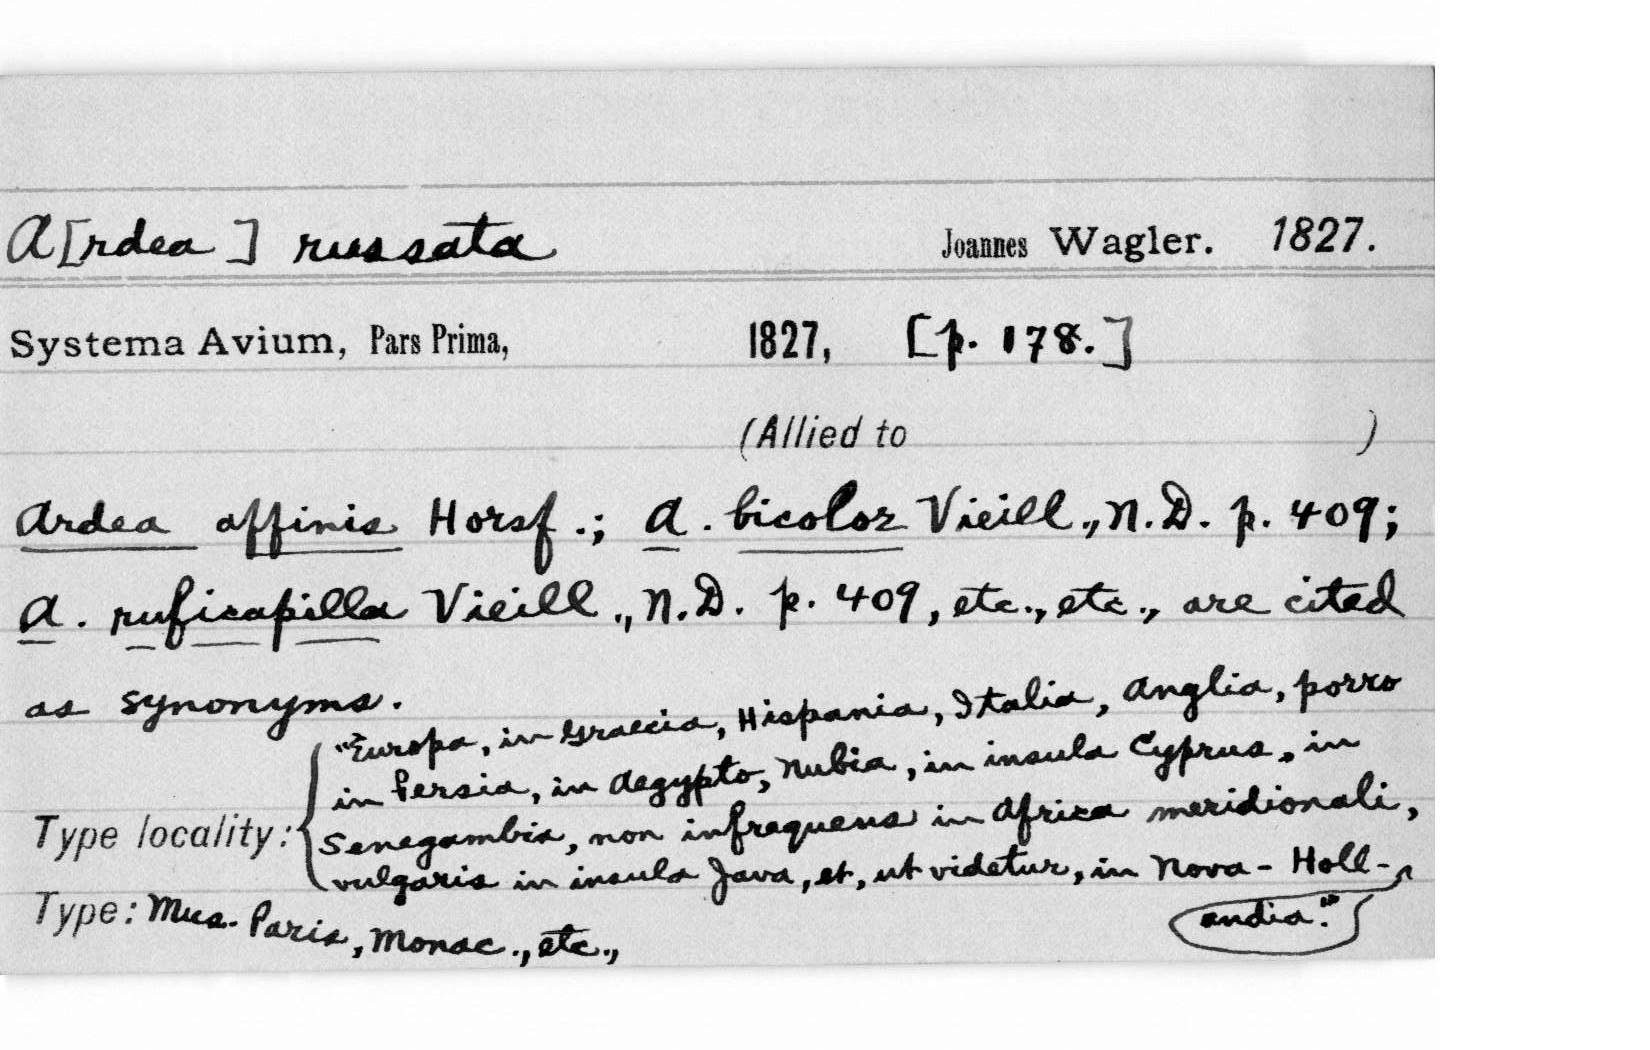 A[rdea] russata Joannes Wagler. 1827.
Systema Avium, Pars Prima, 1827, [p. 178.]
(Allied to )
Ardea affinis Horsf.; A. bicolor Vieill., N.D. p. 409;
A. ruficapilla Vieill., N.D. p. 409, etc., etc., are cited
as synonyms.
"Europa, in Graecia, Hispania, Italia, Anglia, porro
in Persia, in Aegypto, Nubia, in insula Cyprus, in
Type locality: Senegambia, non infrequens in Africa meridionali,
vulgaris in insula Java, et, ut videtur, in Nova-Holl-
andia."
Type: Mus. Paris, Monac., etc.,